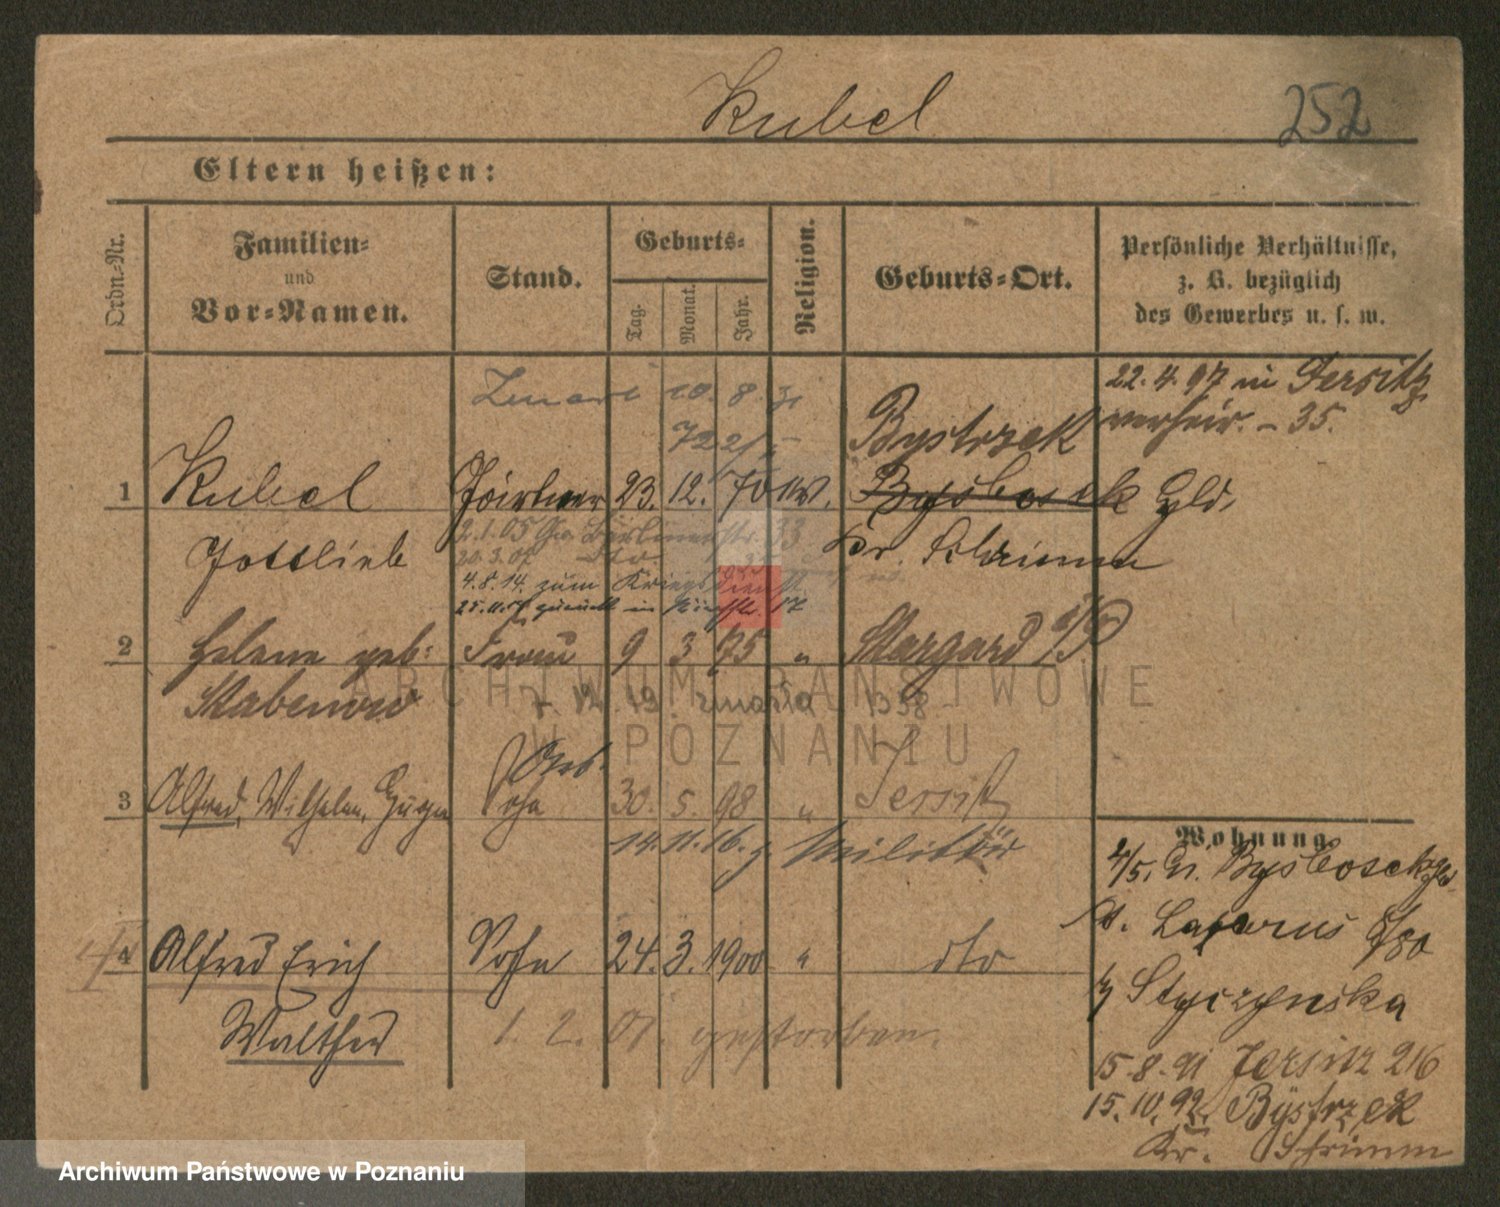 Kubel
252
Eltern heißen:
Ordn.-Nr.
Familien-
und
Vor-Namen.
Stand.
Geburts-
Tag.
Monat.
Jahr.
Religion.
Geburts-Ort.
Persönliche Verhältnisse,
z. B. bezüglich
des Gewerbes u. s. w.
22. 4. 97 in Jersitz
verheir. - 35.
Zmarł 10. 8. 31
72
Bystrzek
1 Kubel 23. 12. 70 ew. Bysboczek Gld.
Gottlieb Kr. Schrimm
2.1.05 Gr. Berlinerstr. 33
20.3.07 dto
4.8.14. zum Kriegsdienst
25.11. zurück in 17
2 Helene geb: Frau 9 3 75 " Stargard i/P
Stabenow
7. 12. 19 zmarła 1338
Arb.
3 Alfred, Wilhelm, Sohn 30. 5. 98 " Jersitz
14. 11. 16. z. Militär
4 Alfred Erich Sohn 24. 3. 1900 " dto
Walther
1. 2. 01. gestorben.
Wohnung.
4/5. Gr. Bysboczek
St. Lazarus 8/80
z Styczynska
15. 8. 91 Jersitz 216
15. 10. 92. Bystrzek
Kr. Schrimm
ARCHIWUM PAŃSTWOWE
W POZNANIU
Archiwum Państwowe w Poznaniu